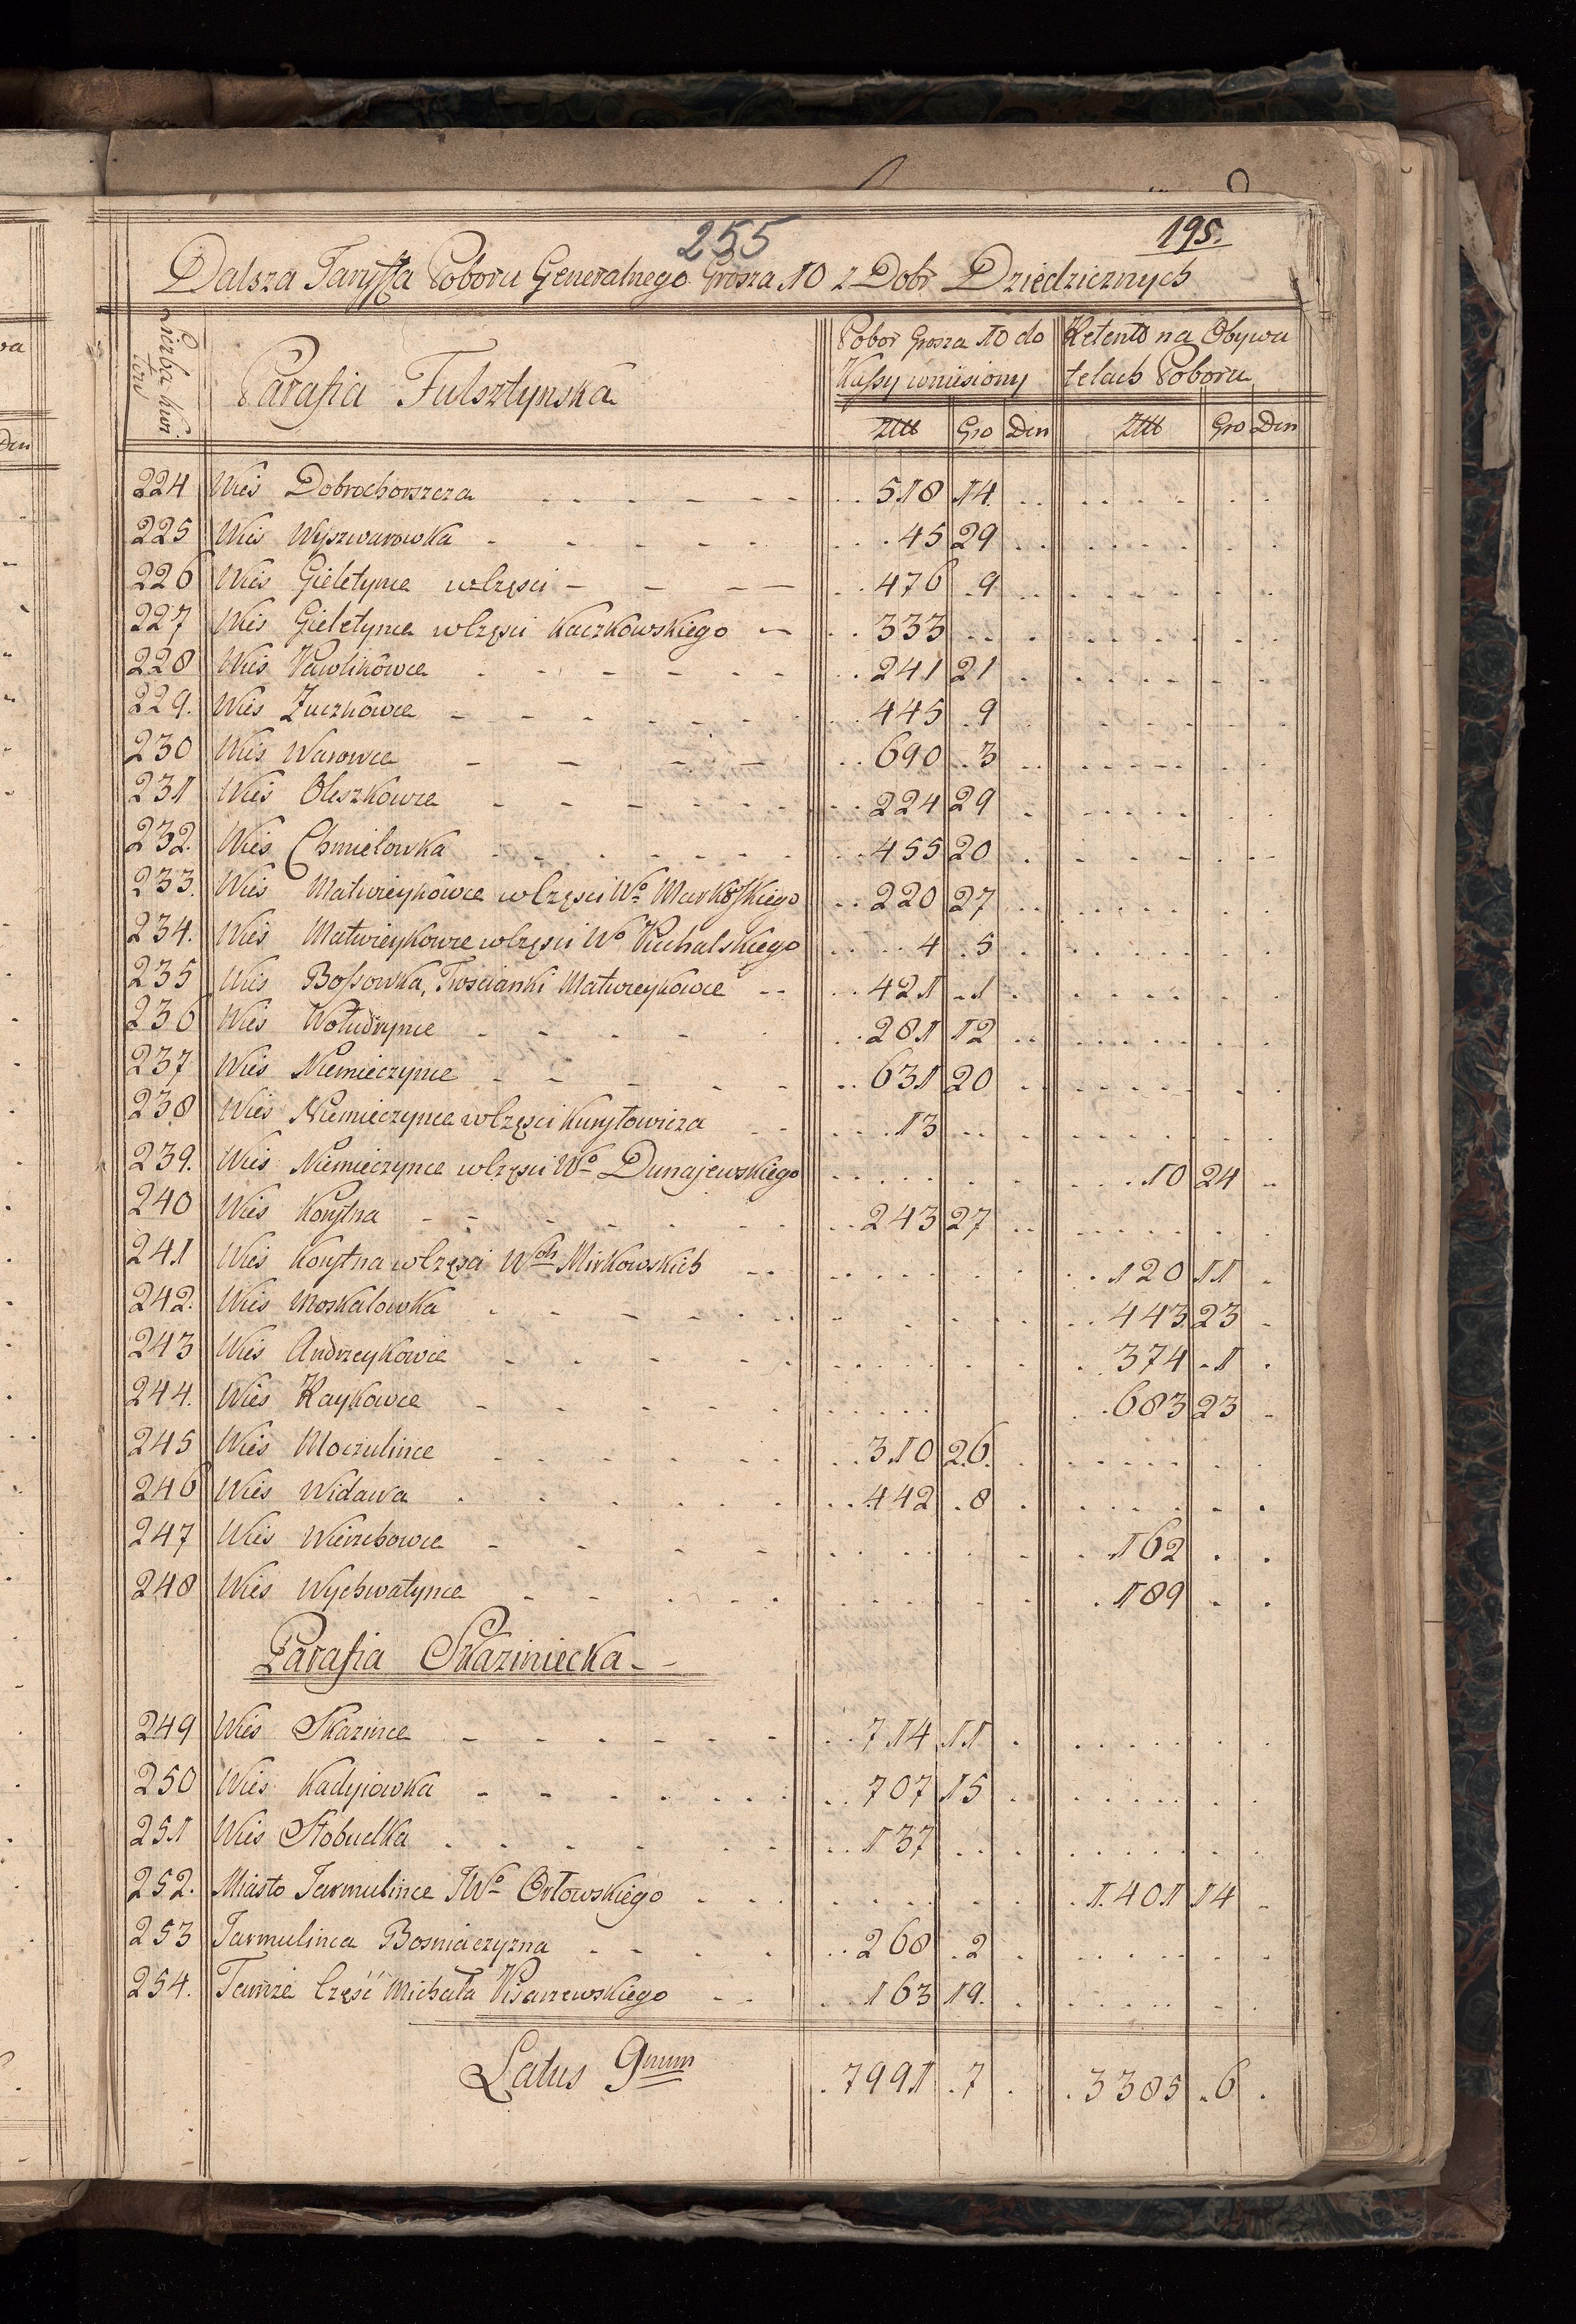 255
195.
Dalsza Taryffa Poboru Generalnego Grosza 10 z Dobr Dziedzicznych
Liczba kwi
tow
Parafia Fulsztynska
Pobor Grosza 10 do
Kassy wniesiony
Retento na Obywa
telach Poboru
Złł Gro Den Złł Gro Den
224 Wieś Dobrochorszcza 518 14
225 Wieś Wyszwarowka 45 29
226 Wieś Gieletynce w Części 476 9
227 Wieś Gieletynce w Części Kaczkowskiego 333
228 Wieś Pawlikowce 241 21
229. Wieś Zuczkowce 445 9
230 Wieś Warowce 690 3
231 Wieś Oleszkowce 224 29
232. Wieś Chmielowka 455 20
233. Wieś Matwieykowce w Części Wo Markoskiego 220 27
234. Wieś Matwieykowce w Części Wo Puchalskiego 4 5
235 Wieś Bossowka, Troscianki Matwieykowce 421 1
236 Wieś Wołudrynce 281 12
237 Wieś Niemieczynce 631 20
238 Wieś Niemieczynce w Części Kuryłowicza 13
239. Wieś Niemieczynce w Części Wo Dunajewskiego 10 24
240 Wieś Korytna 243 27
241 Wieś Korytna w Części Wch Mirkowskich 120 11
242. Wieś Moskalowka 443 23
243 Wieś Andrzeykowce 374 1
244. Wieś Raykowce 683 23
245 Wieś Moczulince 310 26
246 Wieś Widawa 442 8
247 Wieś Wierzbowce 162
248 Wieś Wychwatynce 189
Parafia Skaziniecka
249 Wieś Skazince 714 11
250 Wieś Kadyiowka 707 15
251 Wieś Stobuelka 137
252. Miasto Jarmulince JWo Orłowskiego 1.401 14
253 Jarmulinca Bosniaczyzna 268 2
254. Tamże Część Michała Pisarzewskiego 163 19.
Latus 9num 7991 7 3385 6